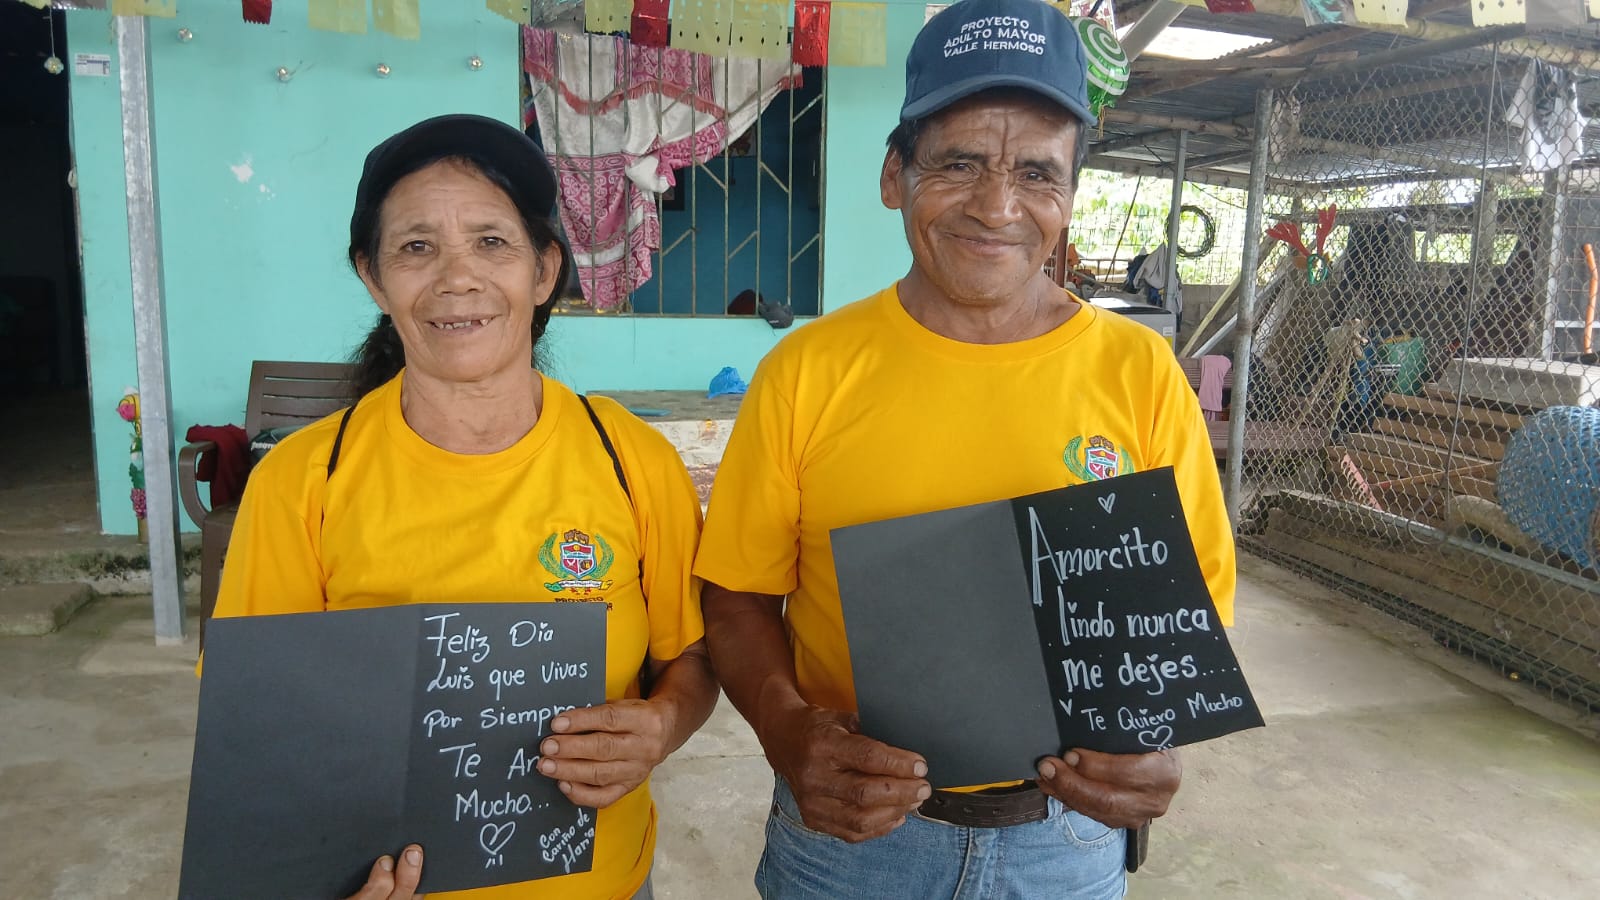 PROYECTO
ADULTO MAYOR
VALLE HERMOSO
Feliz Día
Luis que vivas
por siempre
Te
Mucho...
Con
Cariño de
María
Amorcito
lindo nunca
me dejes....
Te Quiero Mucho
PROYECTO